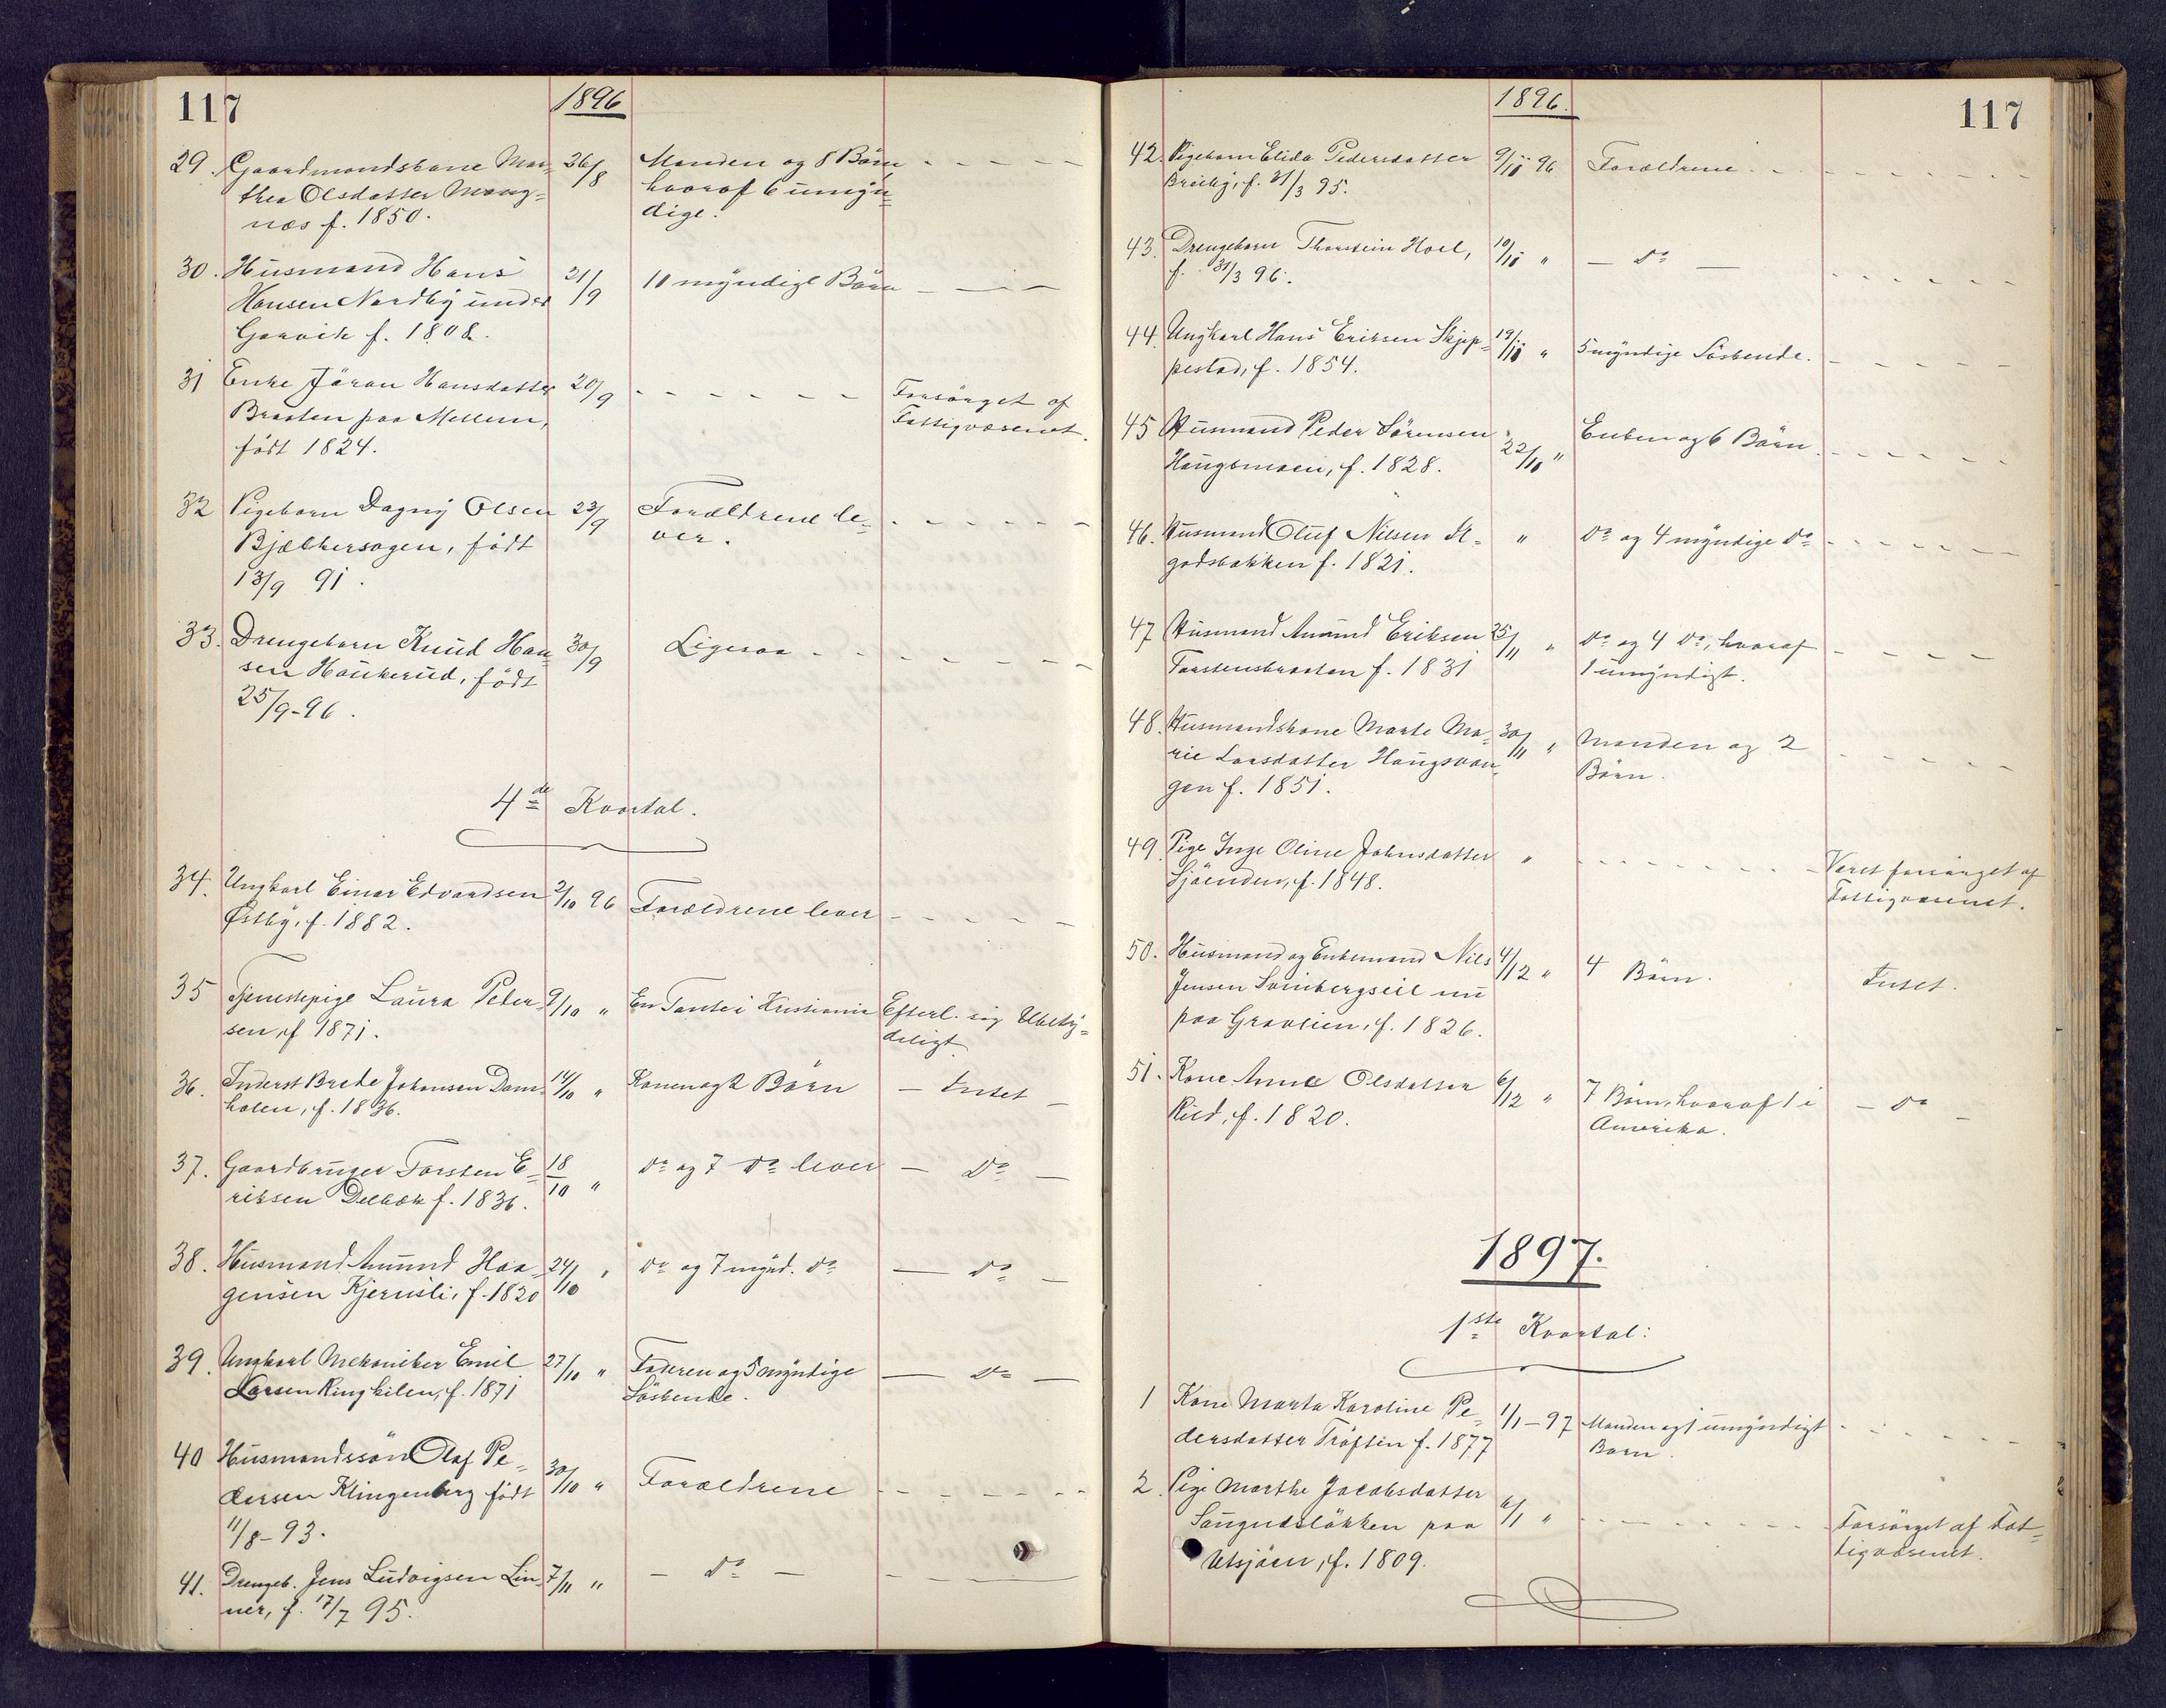 117
1896
29. Gaardmandskone Mar-
thea Olsdatter Mang-
næs f. 1850.
26/8
Manden og 8 Børn
hvoraf 6 umyn-
dige.
30. Husmand Hans
Hansen Nordby under
Garvik f. 1808.
21/9
10 myndige Børn
31 Enke Jöran Hansdatter
Braaten paa Mellem,
født 1824.
20/9
Forsörget af
Fattigvæsenet.
32 Pigebarn Dagny Olsen
Bjælkersagen, født
13/9 91.
23/9
Forældrene le-
ver.
33. Drengebarn Knud Han-
sen Haukerud, født
25/9-96.
30/9
Ligesaa
4de Kvartal.
34. Ungkarl Einar Edvardsen
Østby, f. 1882.
2/10 96
Forældrene lever
35 Tjenestepige Laura Peder-
sen, f 1871.
9/10 "
En Tante i Kristiania
Efterl. sig Ubety-
deligt
36. Inderst Brede Johansen Dam-
holen, f. 1836.
14/10 "
Konen og 2 Børn
— Intet —
37. Gaardbruger Torsten E-
riksen Delbæk f. 1836.
18/10 "
do og 7 do lever
— do —
38. Husmand Amund Haa-
gensen Kjernsli, f. 1820
24/10 "
do og 7 mynd. do
— do —
39. Ungkarl Mekaniker Emil
Larsen Ringkilen, f. 1871
27/10 "
Faderen og 5 myndige
Söskende.
— do —
40 Husmandssön Olaf Pe-
dersen Klingenberg født
11/8-93.
30/10 "
Forældrene
41. Drengeb. Jens Ludvigsen Lin-
ner, f. 17/7 95.
7/11 "
— do —
117
1896.
42. Pigebarn Elida Pedersdatter
Breiby, f. 31/3 95.
9/11 96
Forældrene
43. Drengebarn Thorstein Hoel,
f. 31/3 96.
10/11 "
— do —
44. Ungkarl Hans Eriksen Skjep-
pestad, f. 1854.
19/11 "
5 myndige Söskende.
45 Husmand Peder Sörensen
Haugsmoen, f. 1828.
22/11 "
Enken og 6 Børn.
46. Husmand Oluf Nilsen
godsbakken f. 1821.
"
do og 4 myndige do
47 Husmand Amund Eriksen
Torstensbraaten f. 1831
25/11 "
do og 4 do, hvoraf
1 umyndigt.
48. Husmandskone Marte Ma-
rie Larsdatter Haugsvan-
gen f. 1851.
30/11 "
Manden og 2
Børn.
49. Pige Inge Oline Johnsdatter
Sjöenden, f. 1848.
"
Været forsörget af
Fattigvæsenet.
50. Husmand og Enkemand Nils
Jensen Svinbergseie nu
paa Gravlien, f. 1826.
4/12 "
4 Børn.
Intet.
51. Kone Anne Olsdatter
Rud, f. 1820.
6/12 "
7 Børn, hvoraf 1 i
Amerika.
— do —
1897.
1ste Kvartal:
1 Kone Marta Karoline Pe-
dersdatter Tröften f. 1877
1/1-97
Manden og 1 umyndigt
Barn.
2. Pige Marthe Jacobsdatter
Saugudslökken paa
Utsjöen, f. 1809.
6/1 "
Forsörget af Fat-
tigvæsenet.